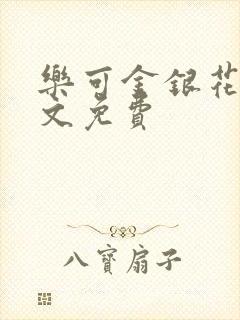 樂可金銀花
文免費
八寶扇子